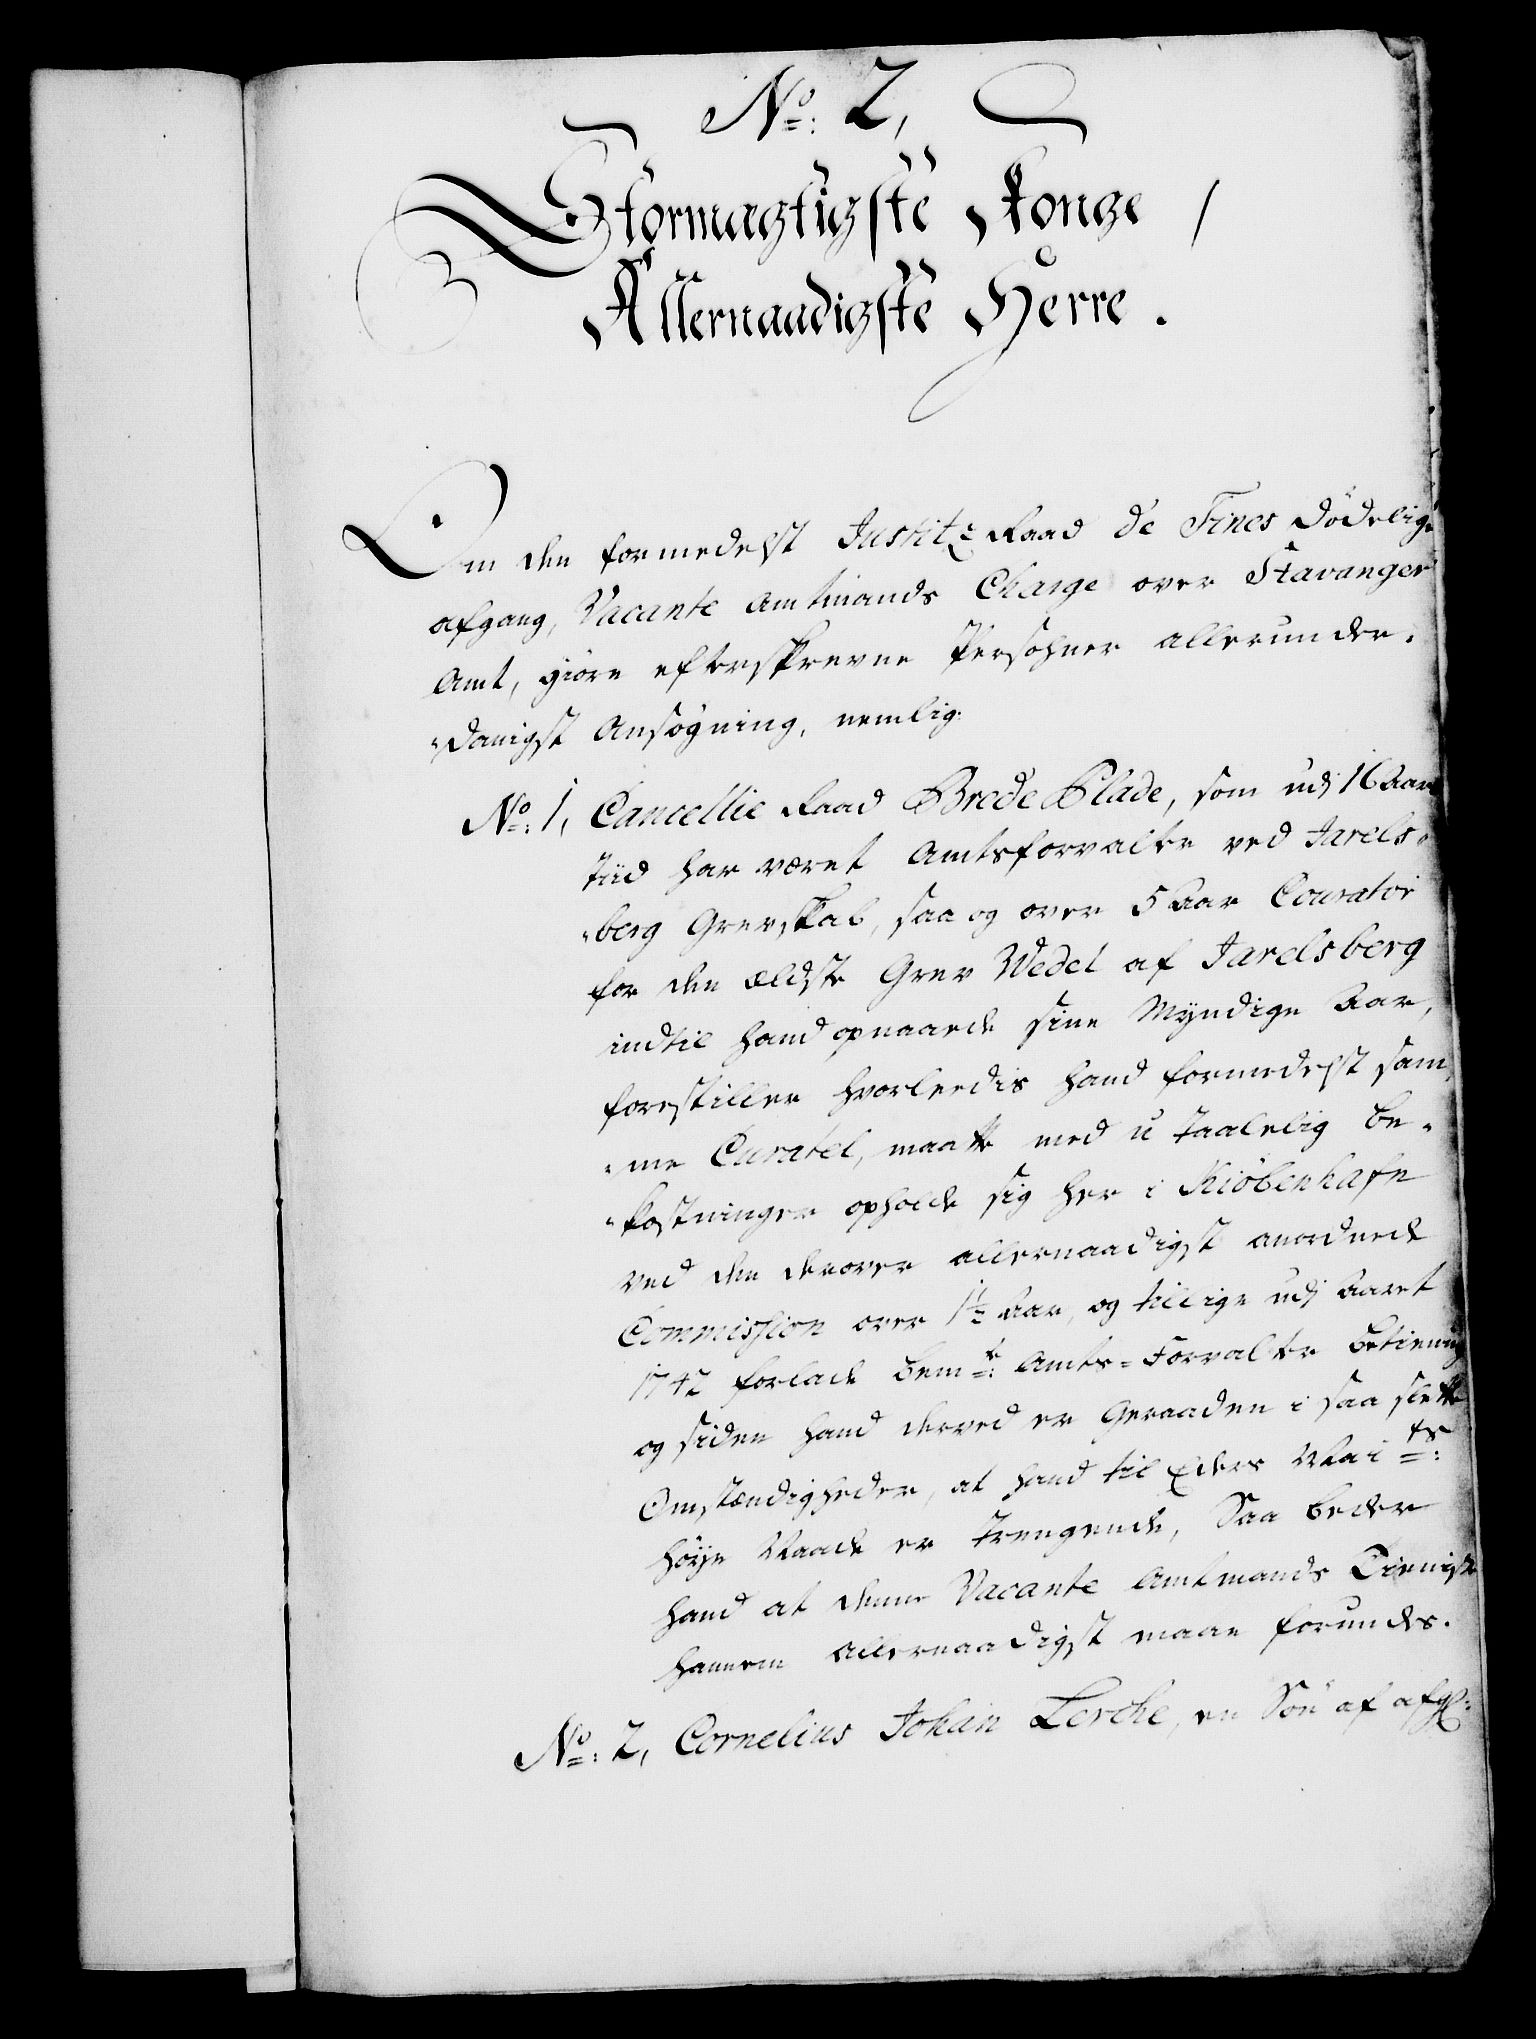 No: 2,
Stormægtigste Konge /
Allernaadigste Herre.
Om den formedelst Justitz Raad de Fines dödelig
afgang, Vacante Amtmands Charge over Stavanger
Amt, giöre efterskrevne Persohner allerunder-
danigst Ansögning, nemlig:
No: 1, Cancellie Raad Brede Blade, som udj 16 Aars
tiid har været Amtsforvalter ved Jarels-
berg Grevskab, saa og over 5 Aar Courator
for den ældste Grev Wedel af Jarelsberg
indtil hand opnaaede sine Myndige Aar,
forestiller hvorleedis hand formedelst sam-
me Curatel, maatte med utaalelig be-
kostninger opholde sig her i Kiöbenhafn
ved den derover allernaadigst anordnede
Commission over 1½ Aar, og tillige udj Aaret
1742 forlade bemte: Amts-Forvalter betiening
og siden hand derved er geraaden i saa slette
Omstændigheder, at hand til Eders Maits:
höye Naade er trengende, Saa beder
hand at denne Vacante Amtmands Tieniste
hannem allernaadigst maae forundes.
No: 2, Cornelius Johan Lerche, en Sön af afg: